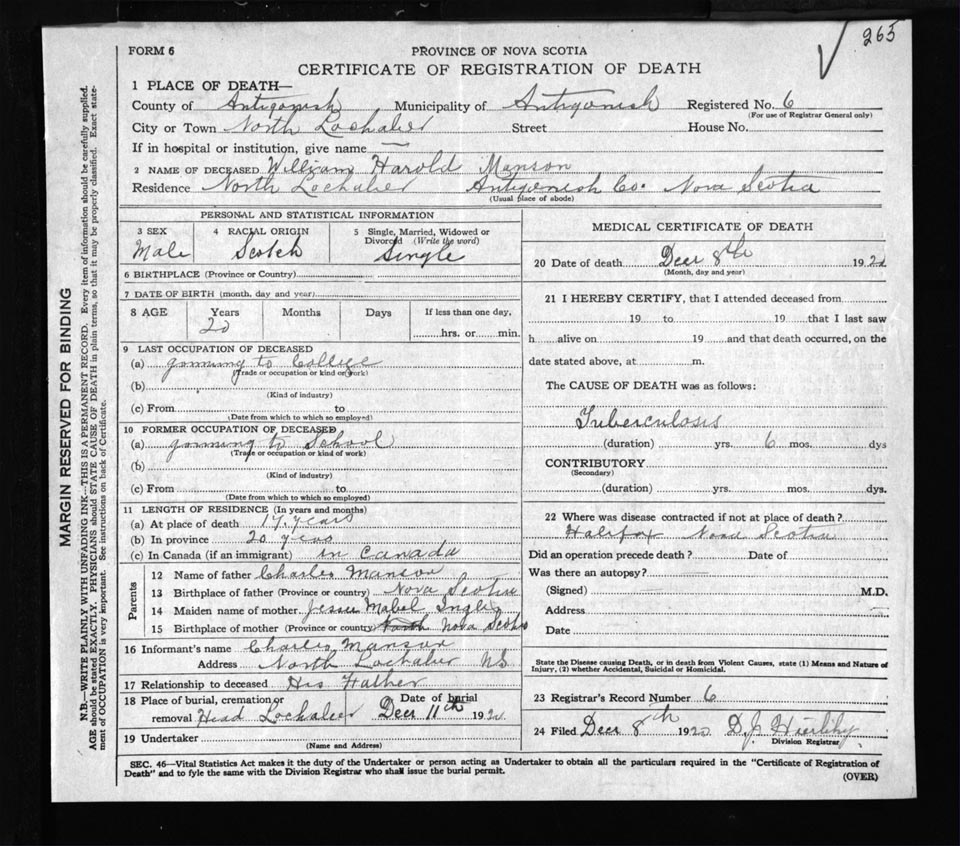 265
FORM 6
PROVINCE OF NOVA SCOTIA
CERTIFICATE OF REGISTRATION OF DEATH
1 PLACE OF DEATH—
County of Antigonish Municipality of Antigonish Registered No. 6
(For use of Registrar General only)
City or Town North Lochaber Street House No.
If in hospital or institution, give name —
2 NAME OF DECEASED William Harold Manson
Residence North Lochaber Antigonish Co. Nova Scotia
(Usual place of abode)
PERSONAL AND STATISTICAL INFORMATION
3 SEX 4 RACIAL ORIGIN 5 Single, Married, Widowed or Divorced (Write the word)
Male Scotch Single
6 BIRTHPLACE (Province or Country)
7 DATE OF BIRTH (month, day and year)
8 AGE Years Months Days If less than one day,
20 hrs. or min.
9 LAST OCCUPATION OF DECEASED
(a) to College
(Trade or occupation or kind of work)
(b)
(Kind of industry)
(c) From to
(Date from which to which so employed)
10 FORMER OCCUPATION OF DECEASED
(a) to School
(Trade or occupation or kind of work)
(b)
(Kind of industry)
(c) From to
(Date from which to which so employed)
11 LENGTH OF RESIDENCE (In years and months)
(a) At place of death years
(b) In province 20 years
(c) In Canada (if an immigrant) in Canada
Parents
12 Name of father Charles Manson
13 Birthplace of father (Province or country) Nova Scotia
14 Maiden name of mother Jessie Mabel Inglis
15 Birthplace of mother (Province or country) Nova Scotia
16 Informant's name Charles Manson
Address North Lochaber NS
17 Relationship to deceased His Father
18 Place of burial, cremation or removal Head Lochaber Date of burial Decr 11th 192
19 Undertaker
(Name and Address)
MEDICAL CERTIFICATE OF DEATH
20 Date of death Decr 8th 192
(Month, day and year)
21 I HEREBY CERTIFY, that I attended deceased from
19 to 19 that I last saw
h alive on 19 and that death occurred, on the
date stated above, at m.
The CAUSE OF DEATH was as follows:
Tuberculosis
(duration) yrs. 6 mos. dys
CONTRIBUTORY
(Secondary)
(duration) yrs. mos. dys.
22 Where was disease contracted if not at place of death?
Halifax Nova Scotia
Did an operation precede death? Date of
Was there an autopsy?
(Signed) M.D.
Address
Date
State the Disease causing Death, or in death from Violent Causes, state (1) Means and Nature of
Injury, (2) whether Accidental, Suicidal or Homicidal.
23 Registrar's Record Number 6
24 Filed Decr 8th 192 D.J.
Division Registrar
SEC. 46—Vital Statistics Act makes it the duty of the Undertaker or person acting as Undertaker to obtain all the particulars required in the "Certificate of Registration of
Death" and to fyle the same with the Division Registrar who shall issue the burial permit.
(OVER)
MARGIN RESERVED FOR BINDING
N.B.—WRITE PLAINLY WITH UNFADING INK—THIS IS A PERMANENT RECORD. Every item of information should be carefully supplied.
AGE should be stated EXACTLY. PHYSICIANS should STATE CAUSE OF DEATH in plain terms, so that it may be properly classified. Exact state-
ment of OCCUPATION is very important. See instructions on back of Certificate.